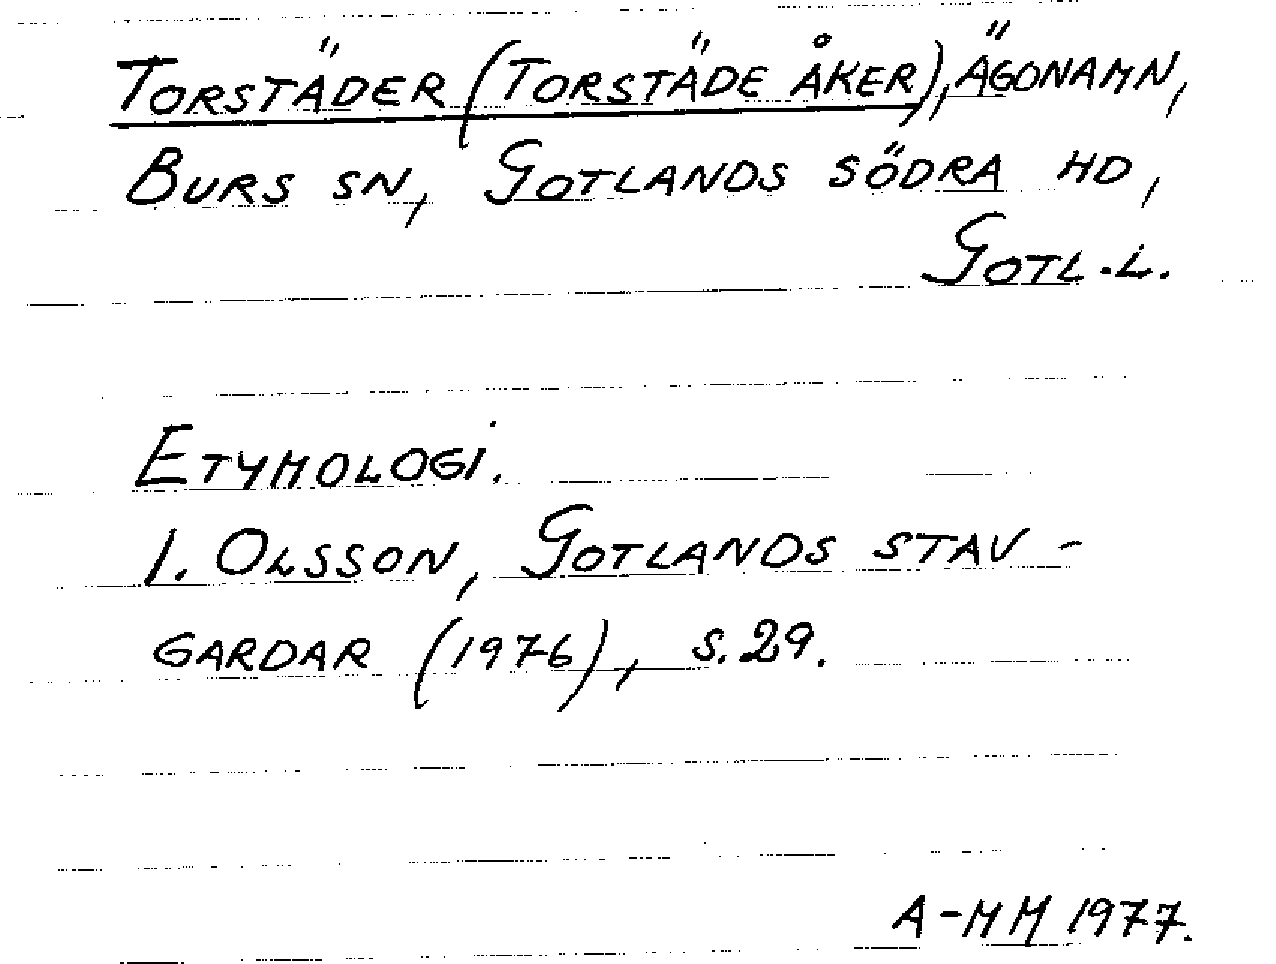 TORSTÄDER (TORSTÄDE ÅKER), ÄGONAMN,
BURS SN, GOTLANDS SÖDRA HD,
GOTL.L.
ETYMOLOGI.
I. OLSSON, GOTLANDS STAV-
GARDAR (1976), S.29.
A-MM 1977.